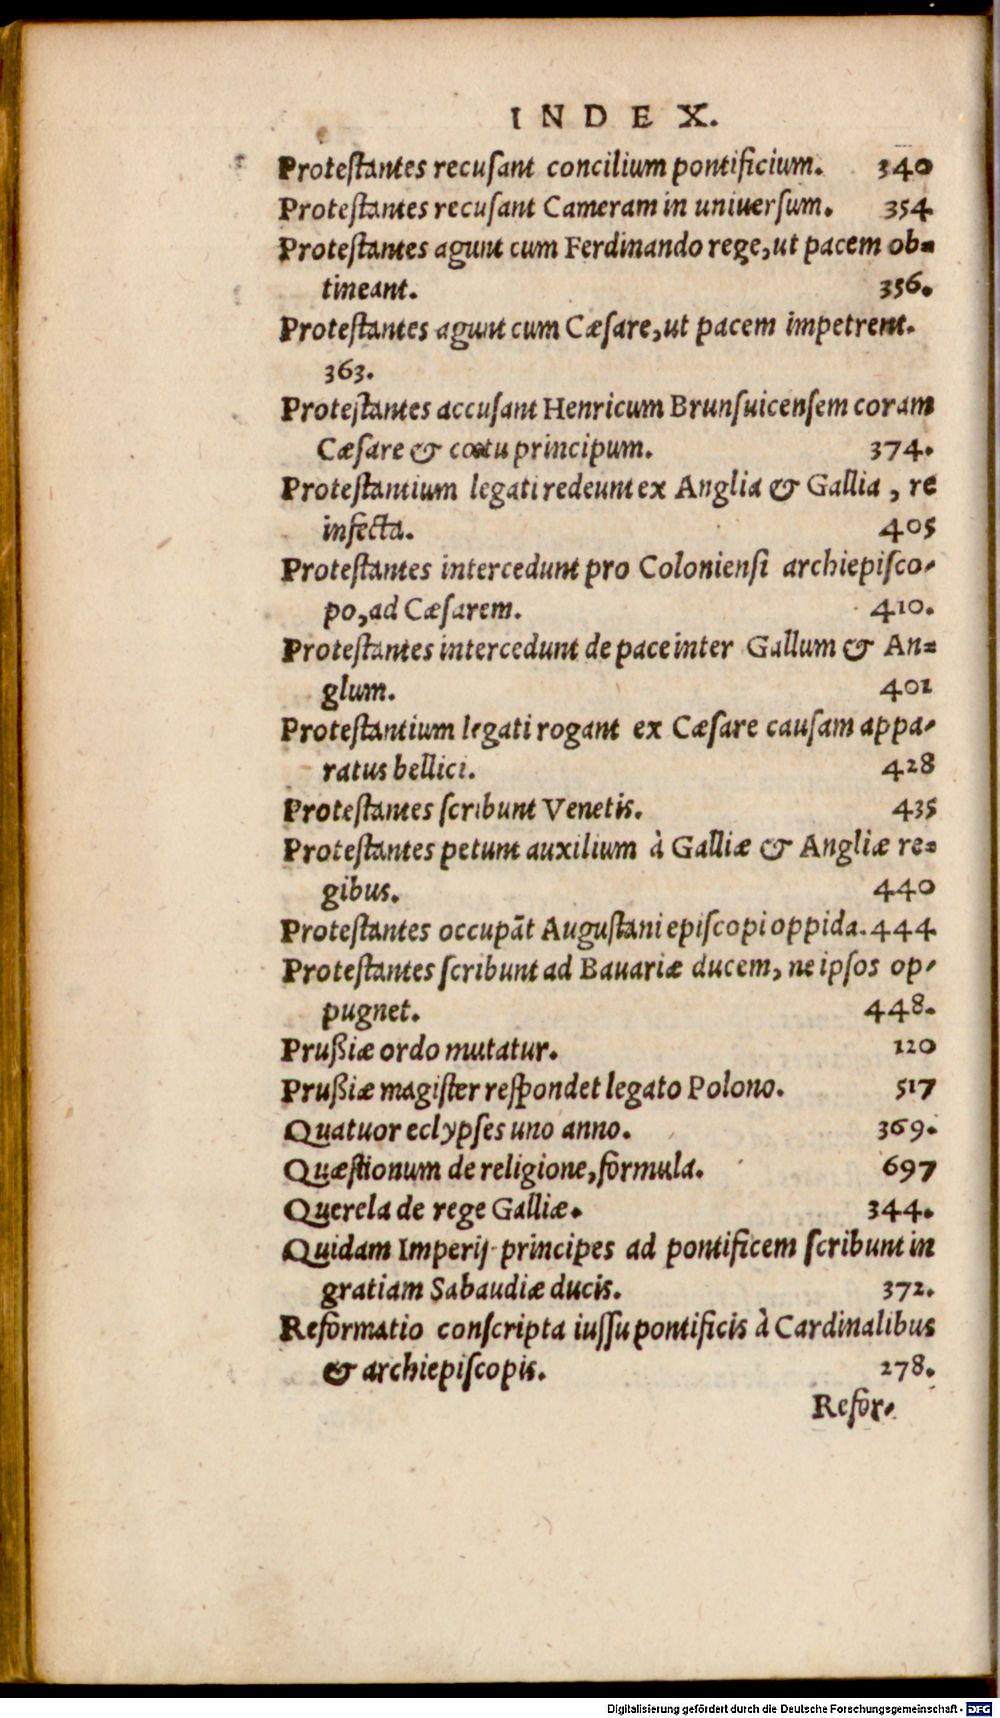 INDEX.
Proteſtantes recuſant concilium pontificium. 340
Proteſtantes recuſant Cameram in uniuerſum. 354
Proteſtantes agunt cum Ferdinando rege, ut pacem ob=
tineant. 356.
Proteſtantes agunt cum Cæſare, ut pacem impetrent.
363.
Proteſtantes accuſant Henricum Brunſuicenſem coram
Cæſare & cœtu principum. 374.
Proteſtantium legati redeunt ex Anglia & Gallia, re
infecta. 405
Proteſtantes intercedunt pro Colonienſi archiepiſco-
po, ad Cæſarem. 410.
Proteſtantes intercedunt de pace inter Gallum & An=
glum. 401
Proteſtantium legati rogant ex Cæſare cauſam appa-
ratus bellici. 428
Proteſtantes ſcribunt Venetis. 435
Proteſtantes petunt auxilium à Galliæ & Angliæ re=
gibus. 440
Proteſtantes occupāt Auguſtani epiſcopi oppida. 444
Proteſtantes ſcribunt ad Bauariæ ducem, ne ipſos op-
pugnet. 448.
Prußiæ ordo mutatur. 120
Prußiæ magiſter reſpondet legato Polono. 517
Quatuor eclypſes uno anno. 369.
Quæſtionum de religione, formula. 697
Querela de rege Galliæ. 344.
Quidam Imperij principes ad pontificem ſcribunt in
gratiam Sabaudiæ ducis. 372.
Reformatio conſcripta iuſſu pontificis à Cardinalibus
& archiepiſcopis. 278.
Refor-
Digitalisierung gefördert durch die Deutsche Forschungsgemeinschaft - DFG